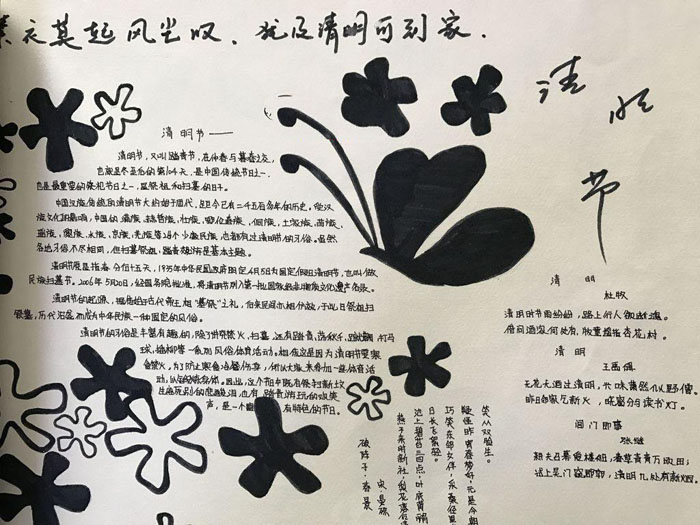 素衣莫起风尘叹，犹及清明可到家．
清明节
清明节——
清明节，又叫踏青节，在仲春与暮春之交，
也就是冬至后的第104天，是中国传统节日之一，
也是最重要的祭祀节日之一，是祭祖和扫墓的日子。
中国汉族传统的清明节大约始于周代，距今已有二千五百多年的历史。受汉
族文化的影响，中国的满族、赫哲族、壮族、鄂伦春族、侗族、土家族、苗族、
瑶族、黎族、水族、京族、羌族等24个少数民族，也都有过清明节的习俗。虽然
各地习俗不尽相同，但扫墓祭祖、踏青郊游是基本主题。
清明节原是指春分后十五天，1935年中华民国政府明定4月5日为国定假日清明节，也叫做
民族扫墓节。2006年5月20日，经国务院批准，将清明节列入第一批国家级非物质文化遗产名录。
清明节的起源，据传始于古代帝王将相“墓祭”之礼，后来民间亦相仿效，于此日祭祖扫
墓，历代沿袭而成为中华民族一种固定的风俗。
清明节的习俗是丰富有趣的，除了讲究禁火、扫墓，还有踏青、荡秋千、蹴鞠、打马
球、插柳等一系列风俗体育活动。相传这是因为清明节要寒
食禁火，为了防止寒食冷餐伤身，所以大家来参加一些体育活
动，以锻炼身体。因此，这个节日中既有祭扫新坟
生离死别的悲酸泪，也有踏青游玩的欢笑
声，是一个 有特色的节日。
清明
杜牧
清明时节雨纷纷，路上行人欲断魂。
借问酒家何处有，牧童遥指杏花村。
清明
王禹偁
无花无酒过清明，兴味萧然似野僧。
昨日邻家乞新火，晓窗分与读书灯。
闾门即事
张继
耕夫召募爱楼船，春草青青万项田；
试上吴门窥郡郭，清明几处有新烟。
破阵子·春景
宋 晏殊
燕子来时新社，梨花落后
池上碧苔三四点，叶底黄鹂
日长飞絮轻。
巧笑东邻女伴，采桑径里
疑怪昨宵春梦好，元是今朝
笑从双脸生。